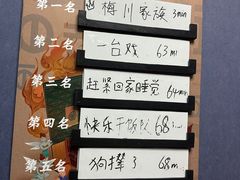 第一名
梅川家族 3min
第二名
一台戏 63mi
第三名
赶紧回家睡觉 64min
第四名
快乐干饭队 68
第五名
狗撵了 68m